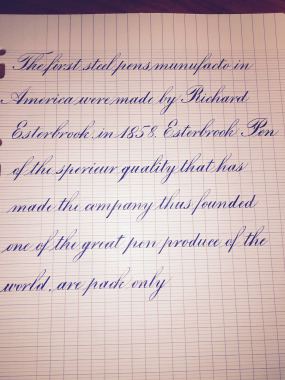 The first steel pens munufacto in
America were made by Richard
Esterbrook in 1858. Esterbrook Pen
of the sperieur quality that has
made the company thus founded
one of the great pen produce of the
world. are pack only